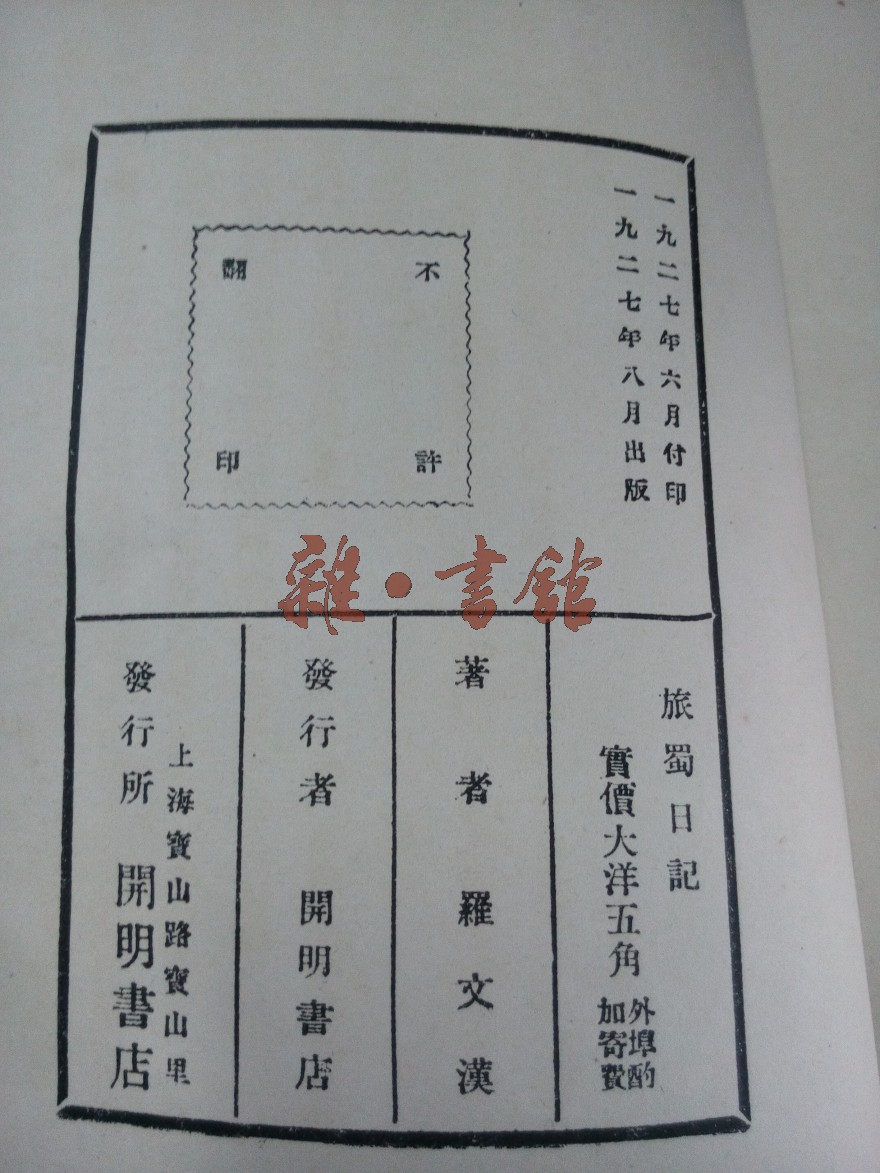 一九二七年六月付印
一九二七年八月出版
不許
翻印
雜·書舘
旅蜀日記
實價大洋五角
外埠酌
加寄費
著者 羅文漢
發行者 開明書店
上海寶山路寶山里
發行所 開明書店